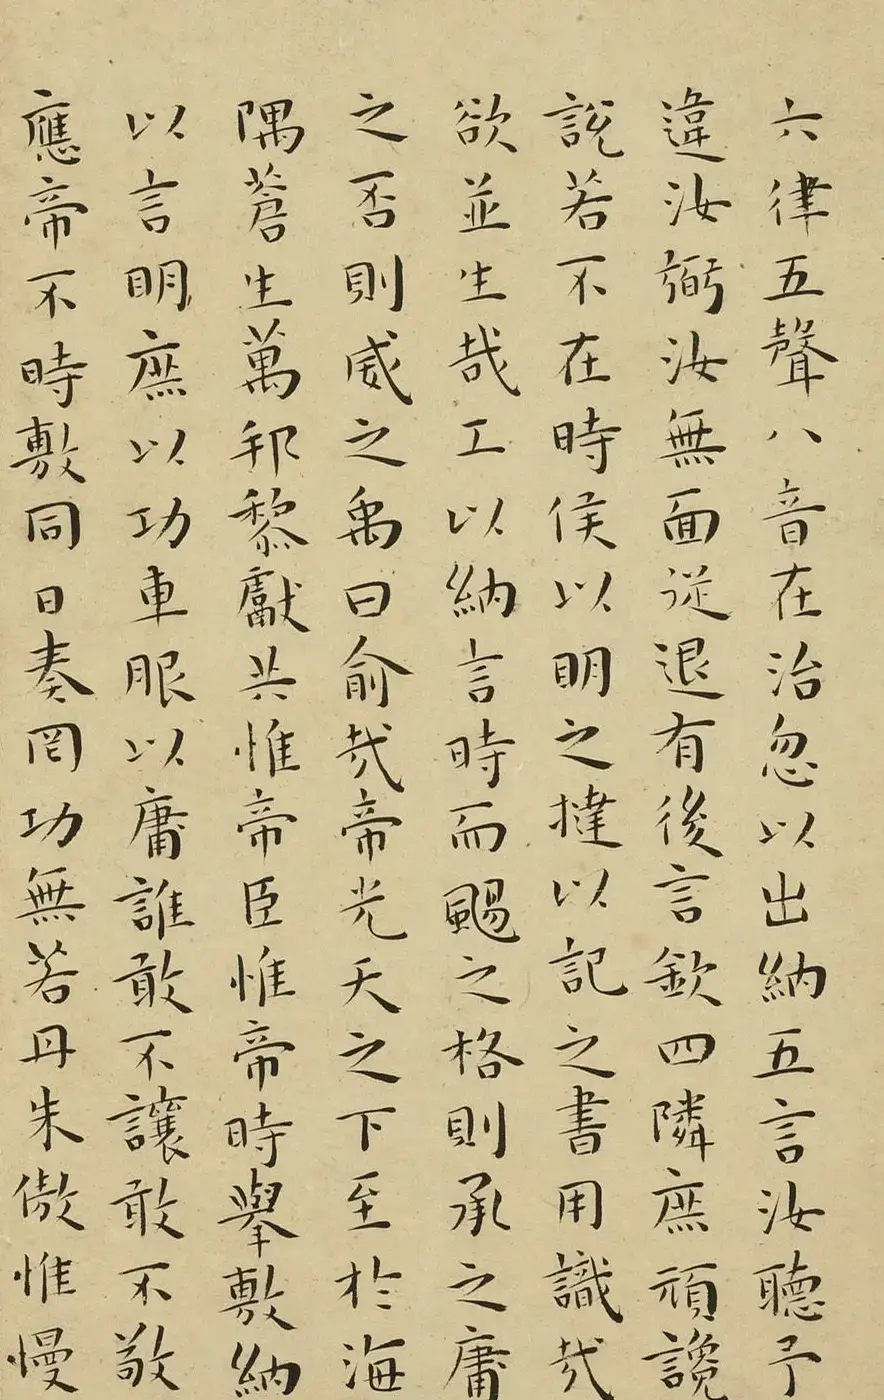 六律五聲八音在治忽以出納五言汝聽予
違汝弼汝無面從退有後言欽四隣庶頑讒
說若不在時侯以明之撻以記之書用識哉
欲並生哉工以納言時而颺之格則承之庸
之否則威之禹曰俞哉帝光天之下至於海
隅蒼生萬邦黎獻共惟帝臣惟帝時舉敷納
以言明庶以功車服以庸誰敢不讓敢不敬
應帝不時敷同日奏罔功無若丹朱傲惟慢